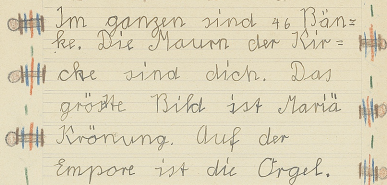 Im ganzen sind 46 Bän=
ke. Die Maurn der Kir=
che sind dich. Das
größte Bild ist Mariä
Krönung. Auf der
Empore ist die Orgel.